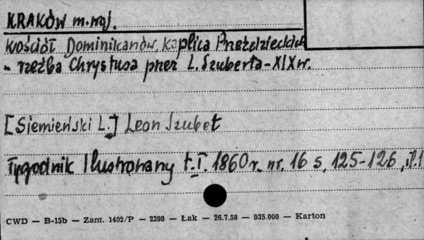 KRAKÓW m.woj.
Kościół Dominikanów, kaplica Przeździeckich
- rzeźba Chrystusa przez L. Szuberta - XIX w.
[Siemieński L.] Leon Szubet
Tygodnik Ilustrowany t.I. 1860 r. nr. 16 s. 125-126, il.1
CWD — B-15b — Zam. 1402/P — 2398 — Łak — 26.7.58 — 935.000 — Karton